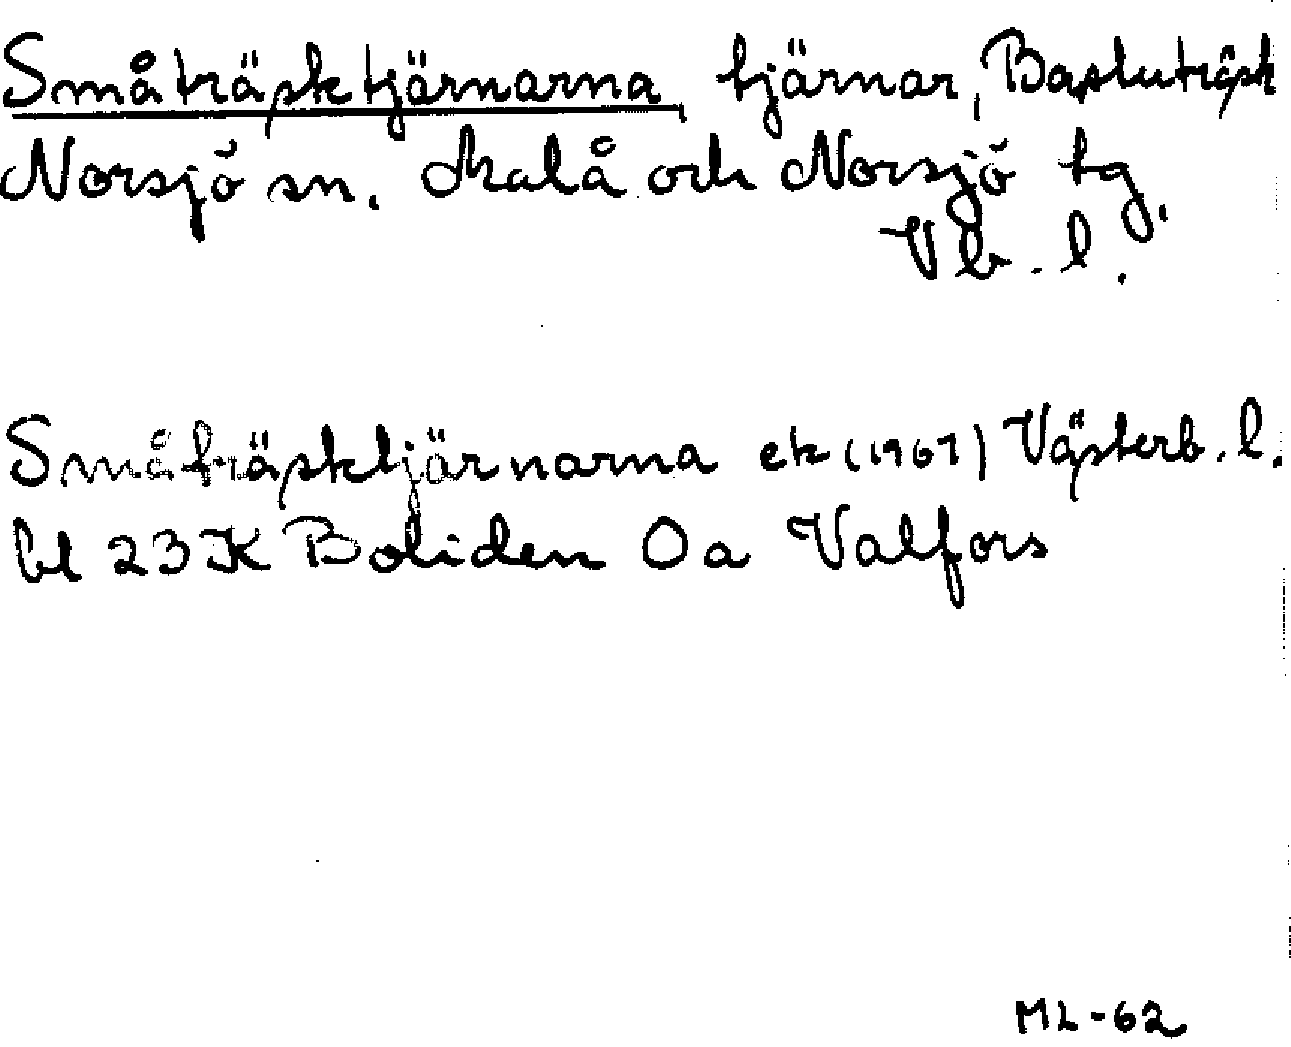 Småträsktjärnarna, tjärnar, Bastuträsk
Norsjö sn. Malå och Norsjö tg.
Vb. l.
Småträsktjärnarna ek (1967) Västerb. l.
bl 23K Boliden 0a Valfors
ML-62